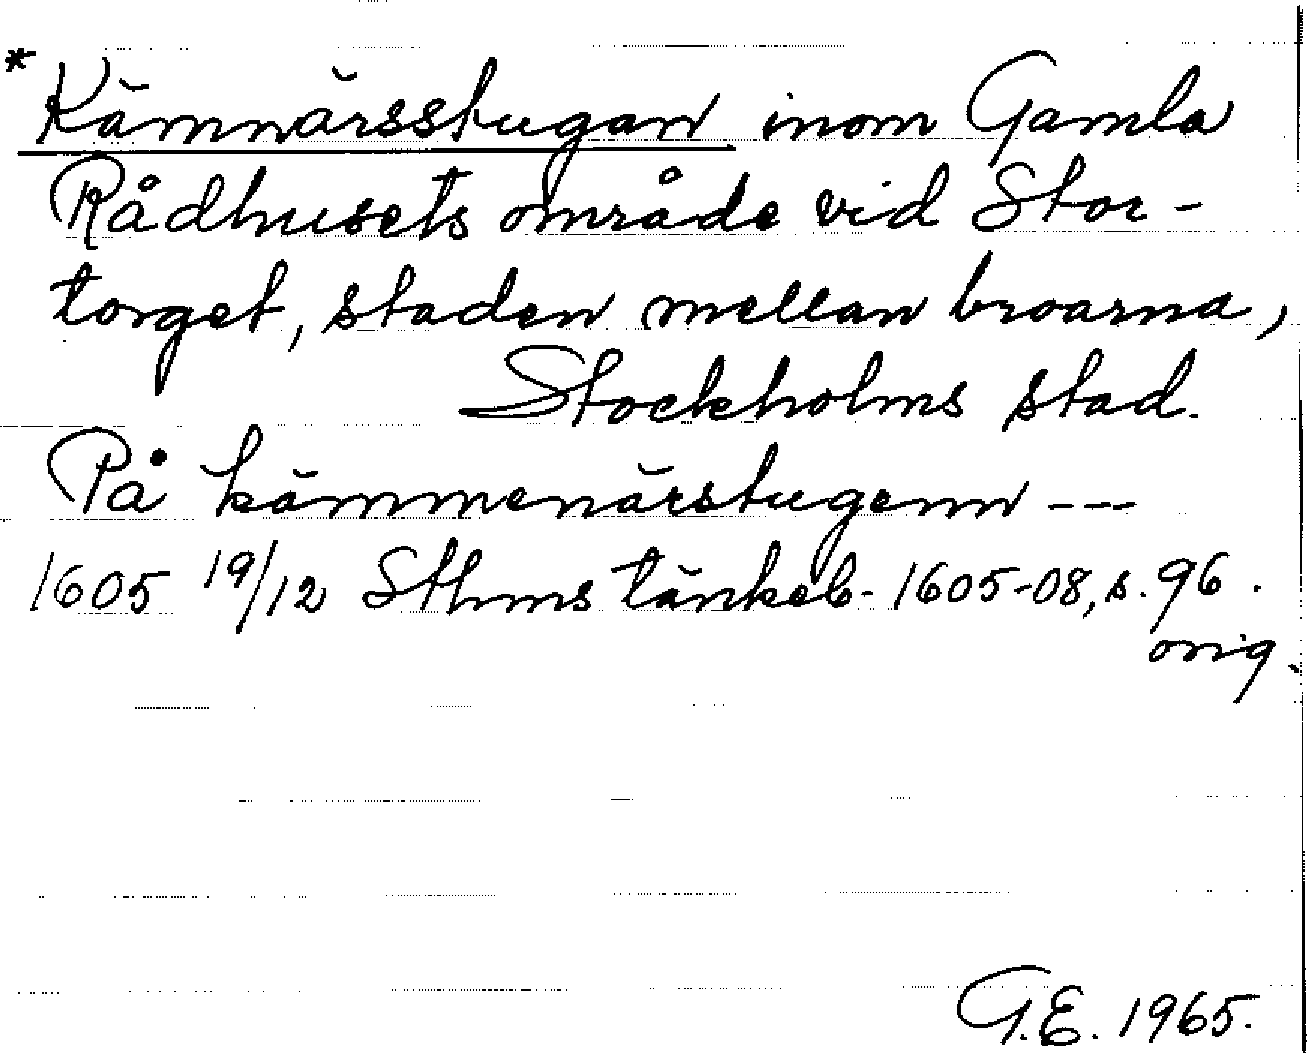 * Kämnärsstugan inom Gamla
Rådhusets område vid Stor-
torget, staden mellan broarna,
Stockholms stad.
På kämmenärstugenn ---
1605 19/12 Sthms tänkeb. 1605-08, s. 96.
orig.
G.E. 1965.